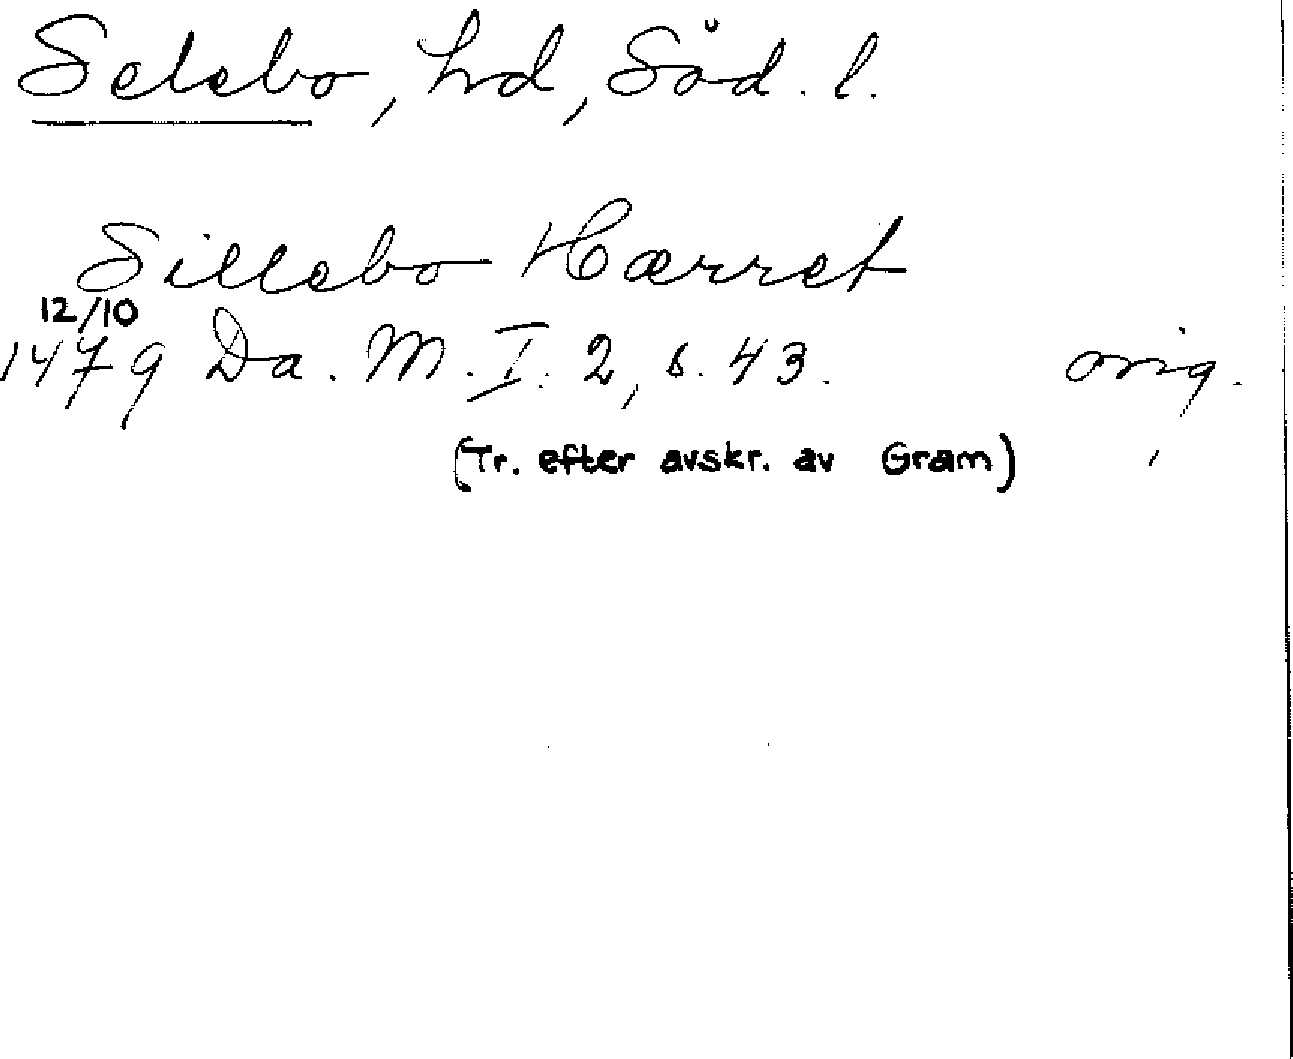 Selebo, hd, Söd. l.
Sillebo Hærret
12/10
1479 Da. M. I. 2, s. 43. orig.
(Tr. efter avskr. av Gram)